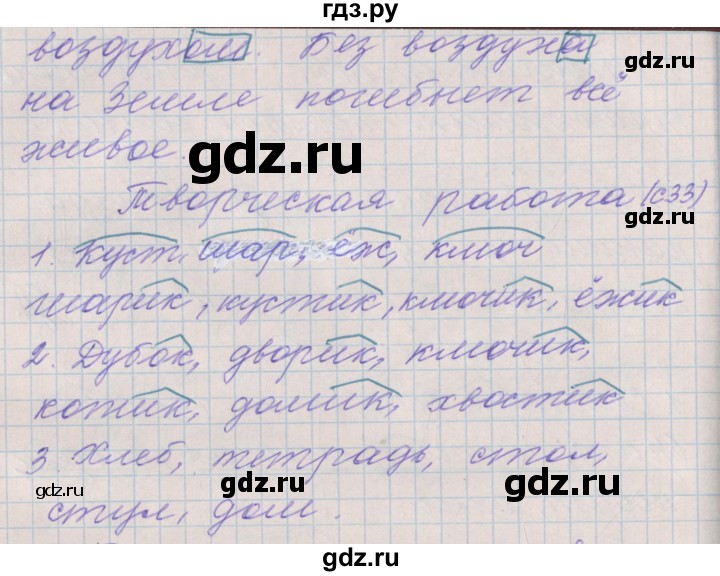 гдз.ру
воздухом. Без воздуха
gdz.ru
gdz.ru
на Земле погибнет всё
живое.
gdz.ru
Творческая работа (с33)
gdz.ru
1. Куст, шар, ёж, ключ
шарик, кустик, ключик, ёжик
2. Дубок, дворик, ключик,
котик, домик, хвостик
3. Хлеб, тетрадь, стол,
gdz.ru
gdz.ru
gdz.ru
стул, дом.
gdz.ru